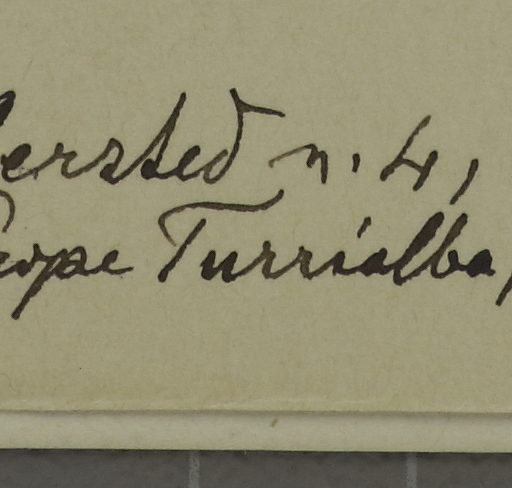 ersted n. 4,
Turrialba,